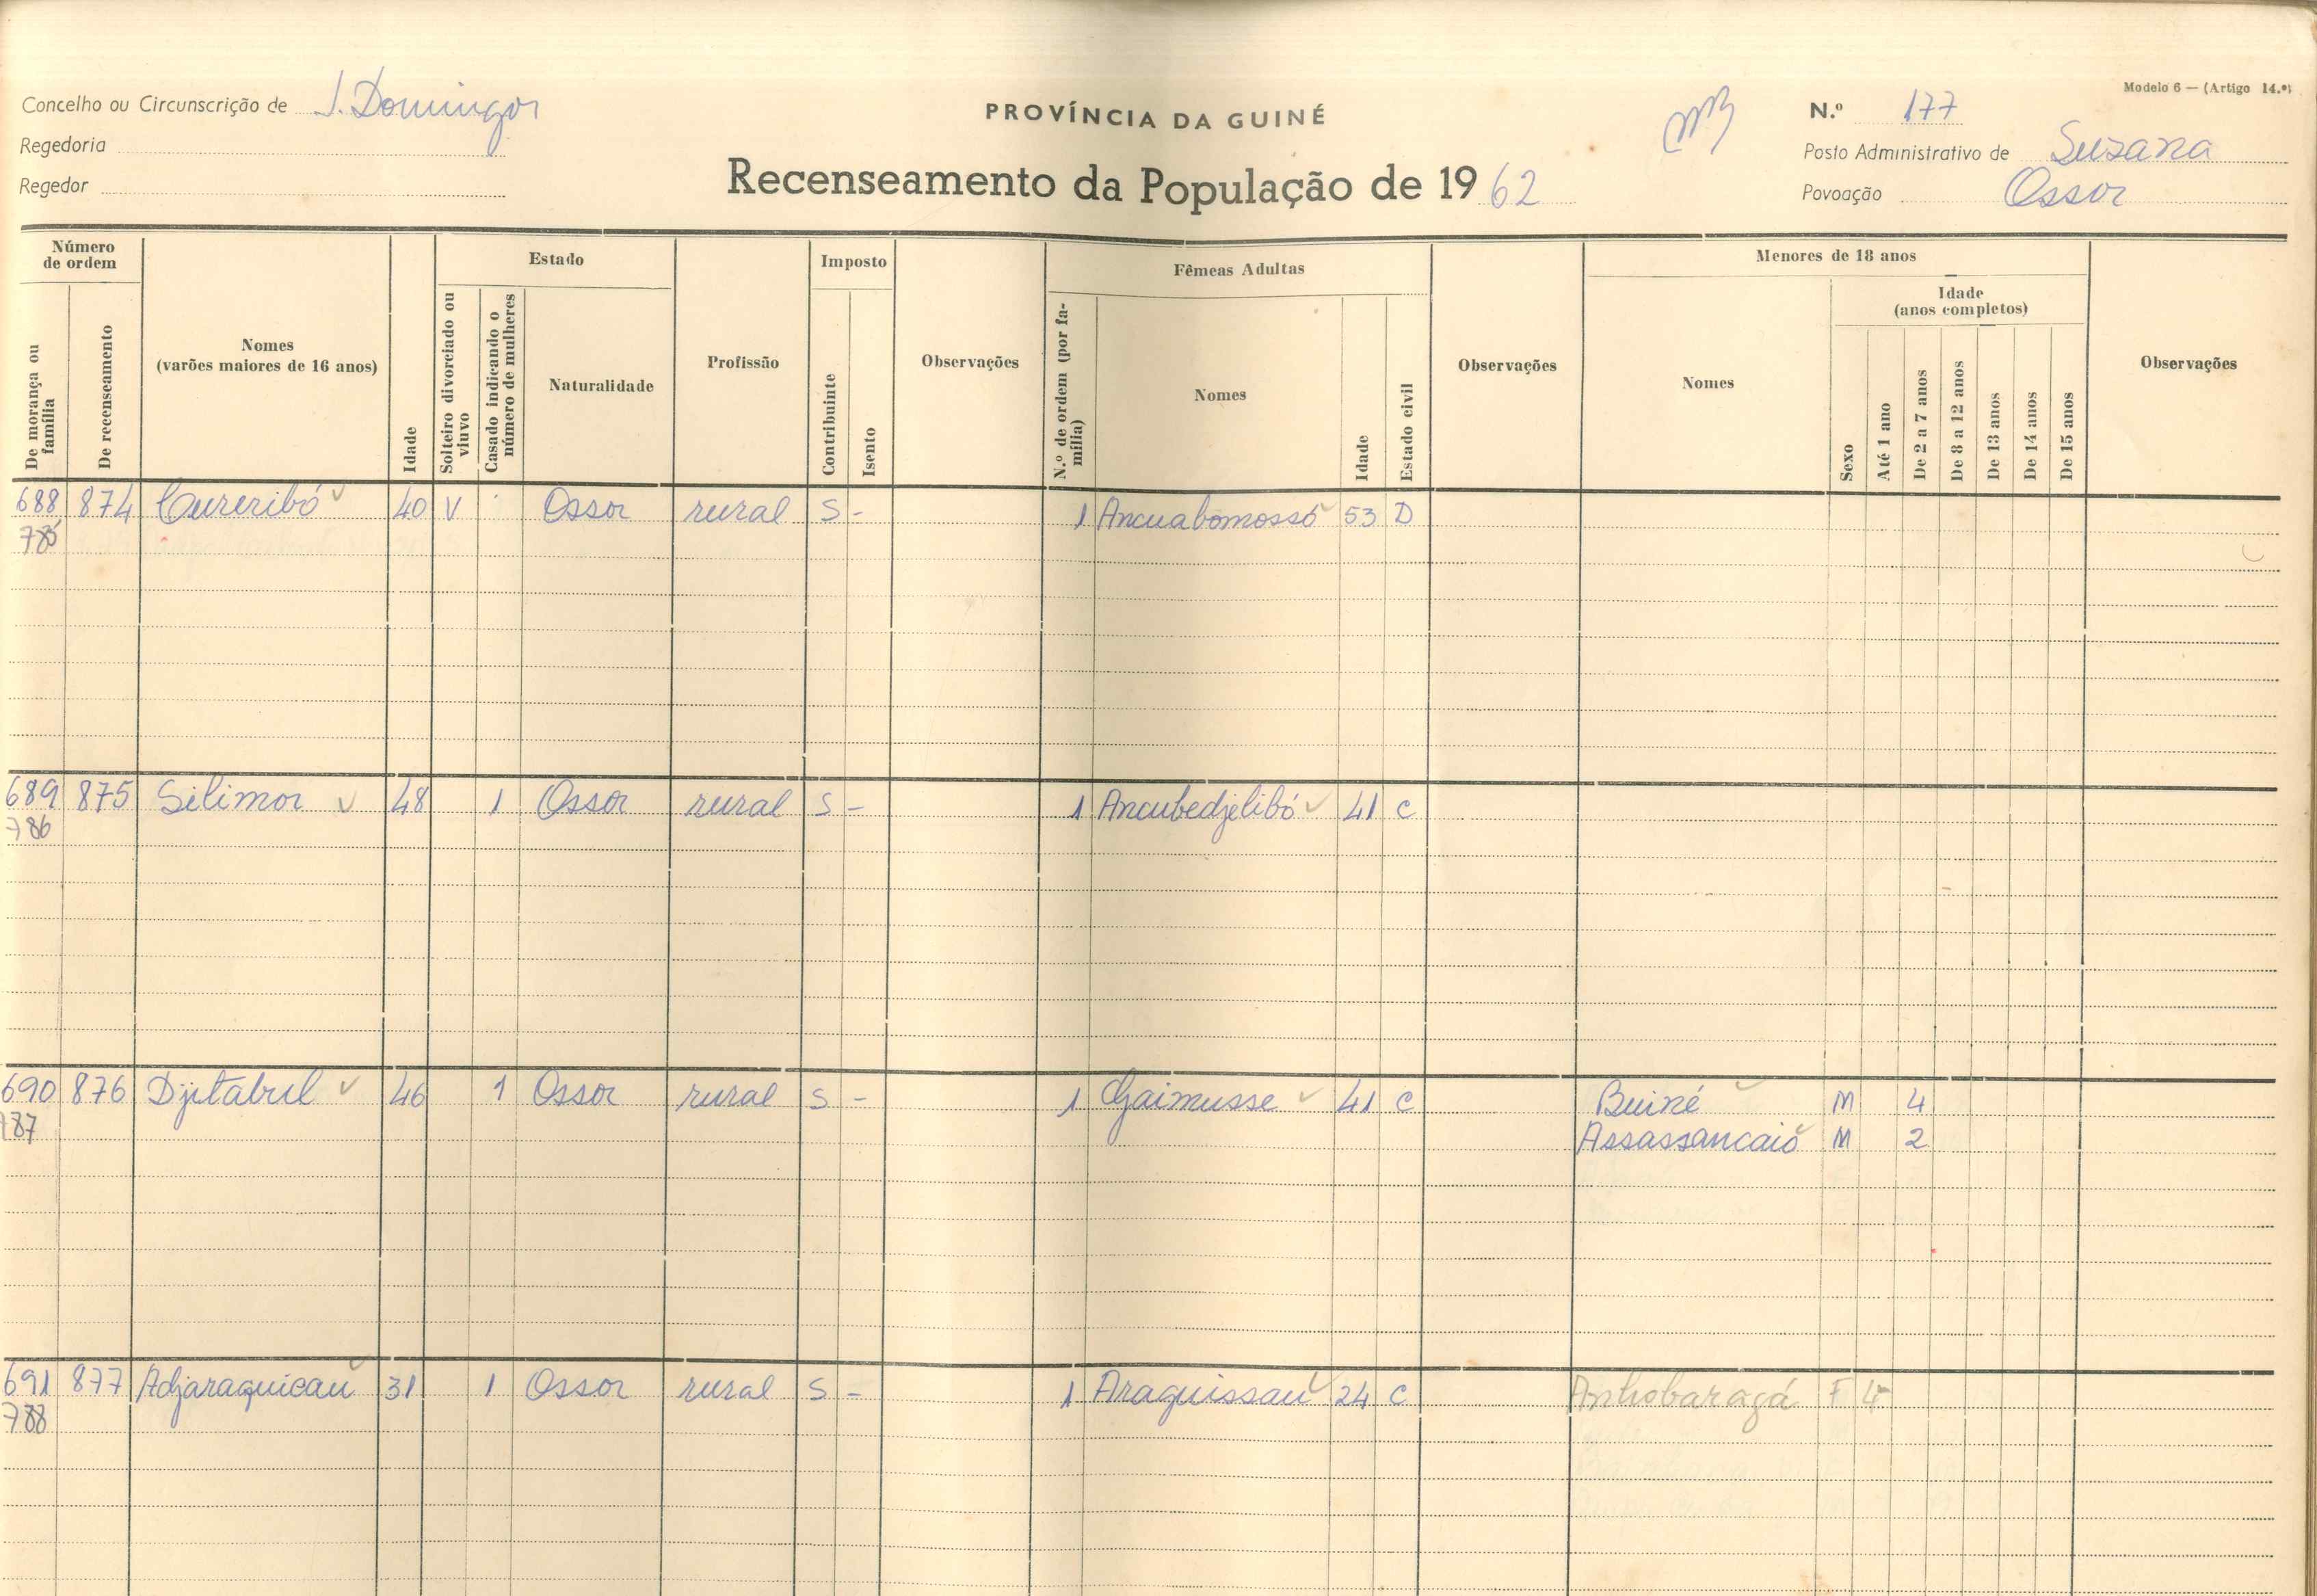 Modelo 6 — (Artigo 14.º)
Concelho ou Circunscrição de S. Domingos
PROVÍNCIA DA GUINÉ
N.º 177
Regedoria
Posto Administrativo de Suzana
Regedor
Recenseamento da População de 1962
Povoação Ossor
Número de ordem
De morança ou família
De recenseamento
Nomes
(varões maiores de 16 anos)
Idade
Estado
Solteiro divorciado ou viuvo
Casado indicando o número de mulheres
Naturalidade
Profissão
Imposto
Contribuinte
Isento
Observações
Fêmeas Adultas
N.º de ordem (por família)
Nomes
Idade
Estado civil
Observações
Menores de 18 anos
Nomes
Sexo
Idade
(anos completos)
Até 1 ano
De 2 a 7 anos
De 8 a 12 anos
De 13 anos
De 14 anos
De 15 anos
Observações
688 874 Cureribó 40 V Ossor rural S - 1 Ancuabomossó 53 D
785
689 875 Silimor 48 1 Ossor rural S - 1 Ancubedjelibó 41 C
786
690 876 Djitabul 46 1 Ossor rural S - 1 Gaimusse 41 C Buiné M 4
787 Assassancaió M 2
691 877 Adjaraquicau 31 1 Ossor rural S - 1 Araguissau 24 C Anhobaragá F
788